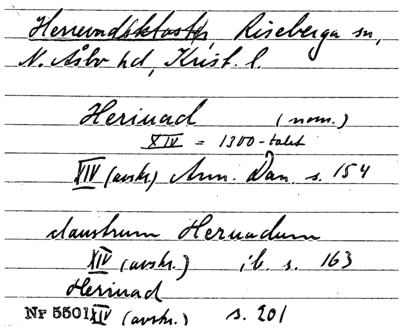 Herrevadskloster, Riseberga sn,
N. Åsbo hd, Krist. l.
Herivad (nom.)
XIV = 1300-talet
XIV (avskr.) Ann. Dan. s. 154
claustrum Heruadum
XIV (avskr.) ib. s. 163
Heriuad
Nr 5501 XIV (avskr.) s. 201